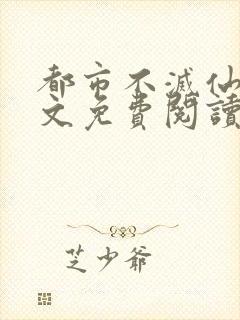 都市不滅仙
文免費閱讀
芝少爺